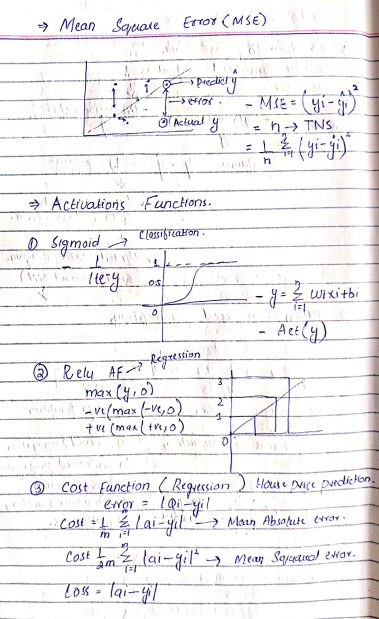 ⇒ Mean Square Error (MSE)
Predict ŷ
error.
Actual y
- MSE = (yi - ŷi)²
= n → TNS
= 1/n Σ i=1 n (yi - ŷi)²
⇒ Activations Functions.
① Sigmoid → Classification.
- 1/1+e-y
1
0.5
0
- y = Σ i=1 n wixi+bi
- Act(y)
② Relu AF → Regression
max(y,0)
-ve(max(-ve,0)
+ve(max(+ve,0)
3
2
1
0
③ Cost Function (Regression) House price prediction.
error = |ai-yi|
Cost = 1/m Σ i=1 n |ai-yi| → Mean Absolute error.
Cost 1/2m Σ i=1 n |ai-yi|² → Mean Squared error.
Loss = |ai-yi|